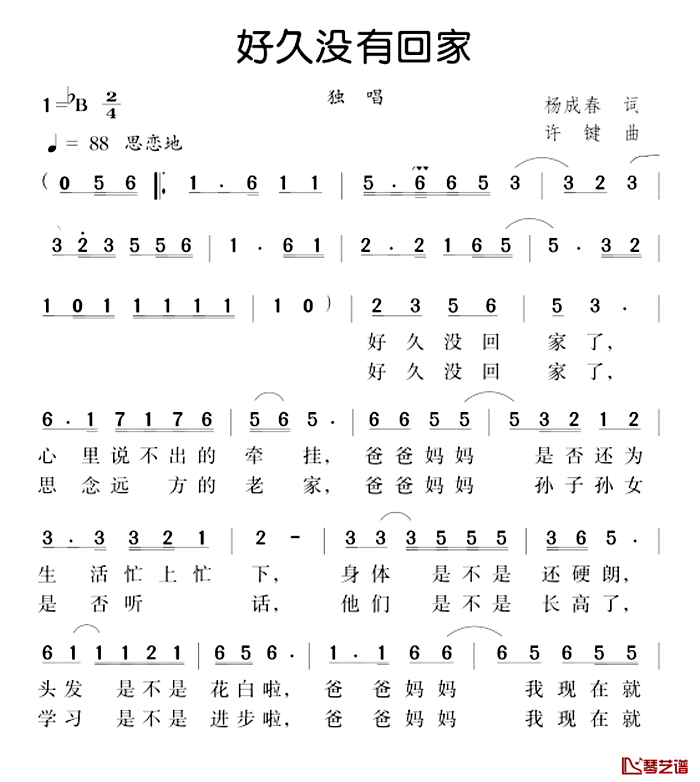 好久没有回家
1=♭B 2/4
独 唱
杨成春 词
许 键 曲
♩= 88 思恋地
( 0 5 6 1 . 6 1 1 | 5 . 6 6 5 3 | 3 2 3
3 2 3 5 5 6 | 1 . 6 1 | 2 . 2 1 6 5 | 5 . 3 2
1 0 1 1 1 1 1 | 1 0 ) | 2 3 5 6 | 5 3 . |
好 久 没 回 家 了,
好 久 没 回 家 了,
6 . 1 7 1 7 6 | 5 6 5 . | 6 6 5 5 | 5 3 2 1 2
心 里 说 不 出 的 牵 挂, 爸 爸 妈 妈 是 否 还 为
思 念 远 方 的 老 家, 爸 爸 妈 妈 孙 子 孙 女
3 . 3 3 2 1 | 2 - | 3 3 3 5 5 5 | 3 6 5 . |
生 活 忙 上 忙 下, 身 体 是 不 是 还 硬 朗,
是 否 听 话, 他 们 是 不 是 长 高 了,
6 1 1 1 2 1 | 6 5 6 . | 1 . 1 6 6 | 6 5 6 5 5
头 发 是 不 是 花 白 啦, 爸 爸 妈 妈 我 现 在 就
学 习 是 不 是 进 步 啦, 爸 爸 妈 妈 我 现 在 就
琴艺谱